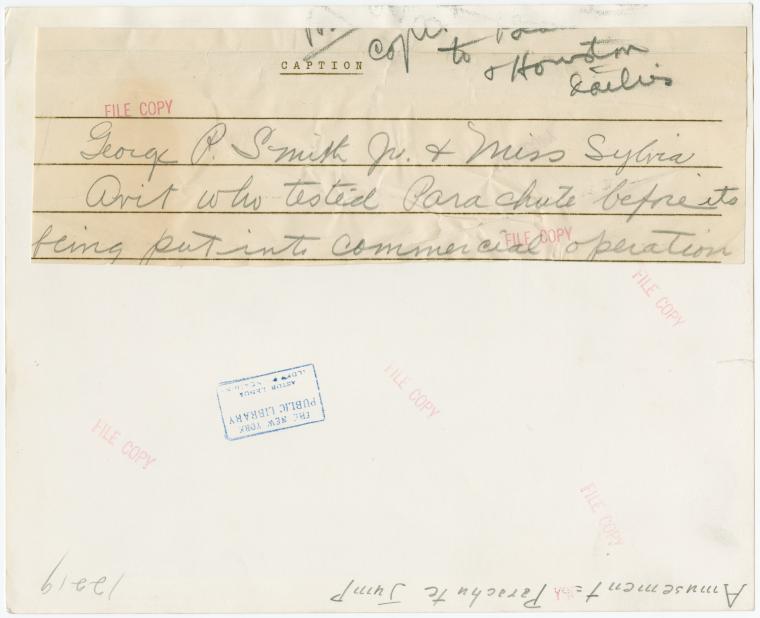 to
Houston
CAPTION
FILE COPY
George P. Smith Jr. & Miss Sylvia
Avit who tested Parachute before its
being put into commercial operation
FILE COPY
FILE COPY
FILE COPY
FILE COPY
FILE COPY
THE NEW YORK
PUBLIC LIBRARY
ASTOR LENOX
Amusement = Parachute Jump
12219